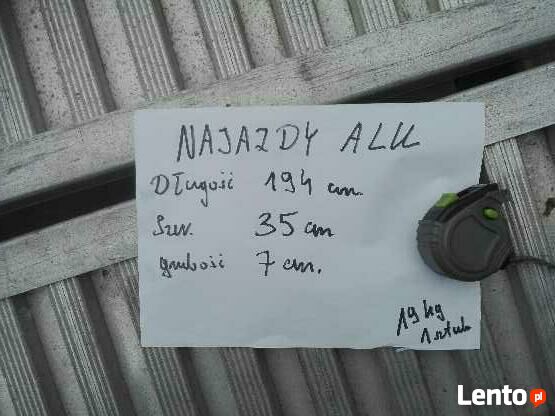 NAJAZDY ALU
Długość 194 cm
Szer. 35 cm
grubość 7 cm.
19 kg
1 sztuk
Lento.pl